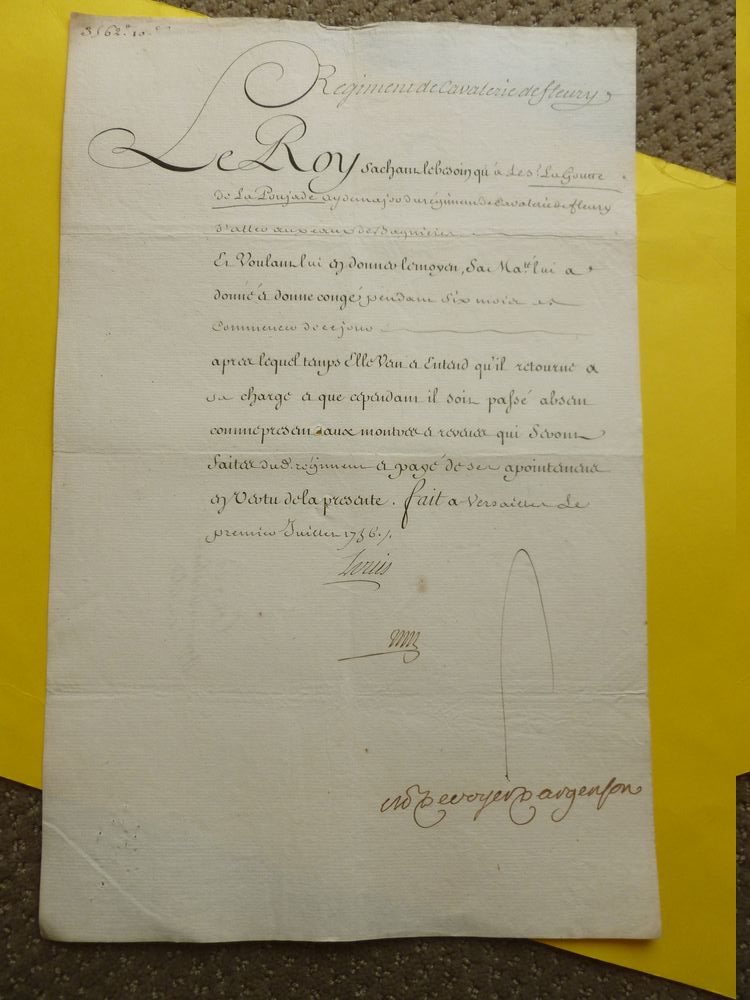 Regiment de Cavalerie de fleury
Le Roy sachant le besoin qu'a le Sr. La Goutte
de La Poujade aydemajor du régiment de Cavalerie de fleury
d'aller aux eaux de Bagnieres
Et Voulant lui en donner le moyen, Sa Maté. lui a
donné et donne congé pendant Six mois à
Commencer de ce jour
apres lequel temps Elle Veut et Entend qu'il retourne a
sa charge et que cependant il soit passé absent
comme present aux montres et reveues qui Seront
faites dud. régiment et payé de ses apointemens
en Vertu de la presente. fait a Versailles Le
premier Juillet 1756./.
Louis
M De voyer D'argenson